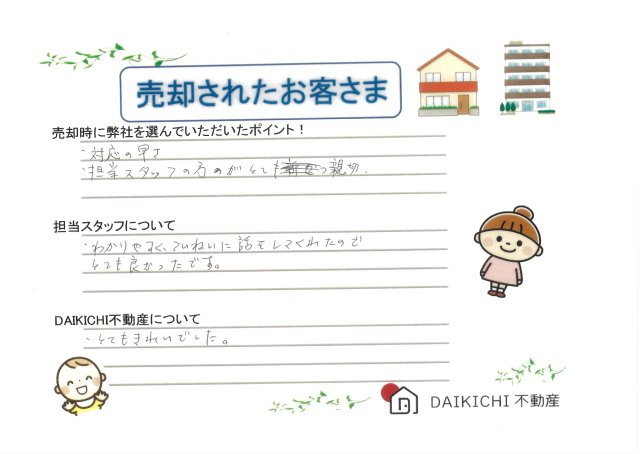 売却されたお客さま
売却時に弊社を選んでいただいたポイント！
・対応の早さ
・担当スタッフの方のがとても 親切。
担当スタッフについて
・わかりやすく、ていねいに話をしてくれたので
とても良かったです。
DAIKICHI不動産について
・とてもきれいでした。
DAIKICHI 不動産